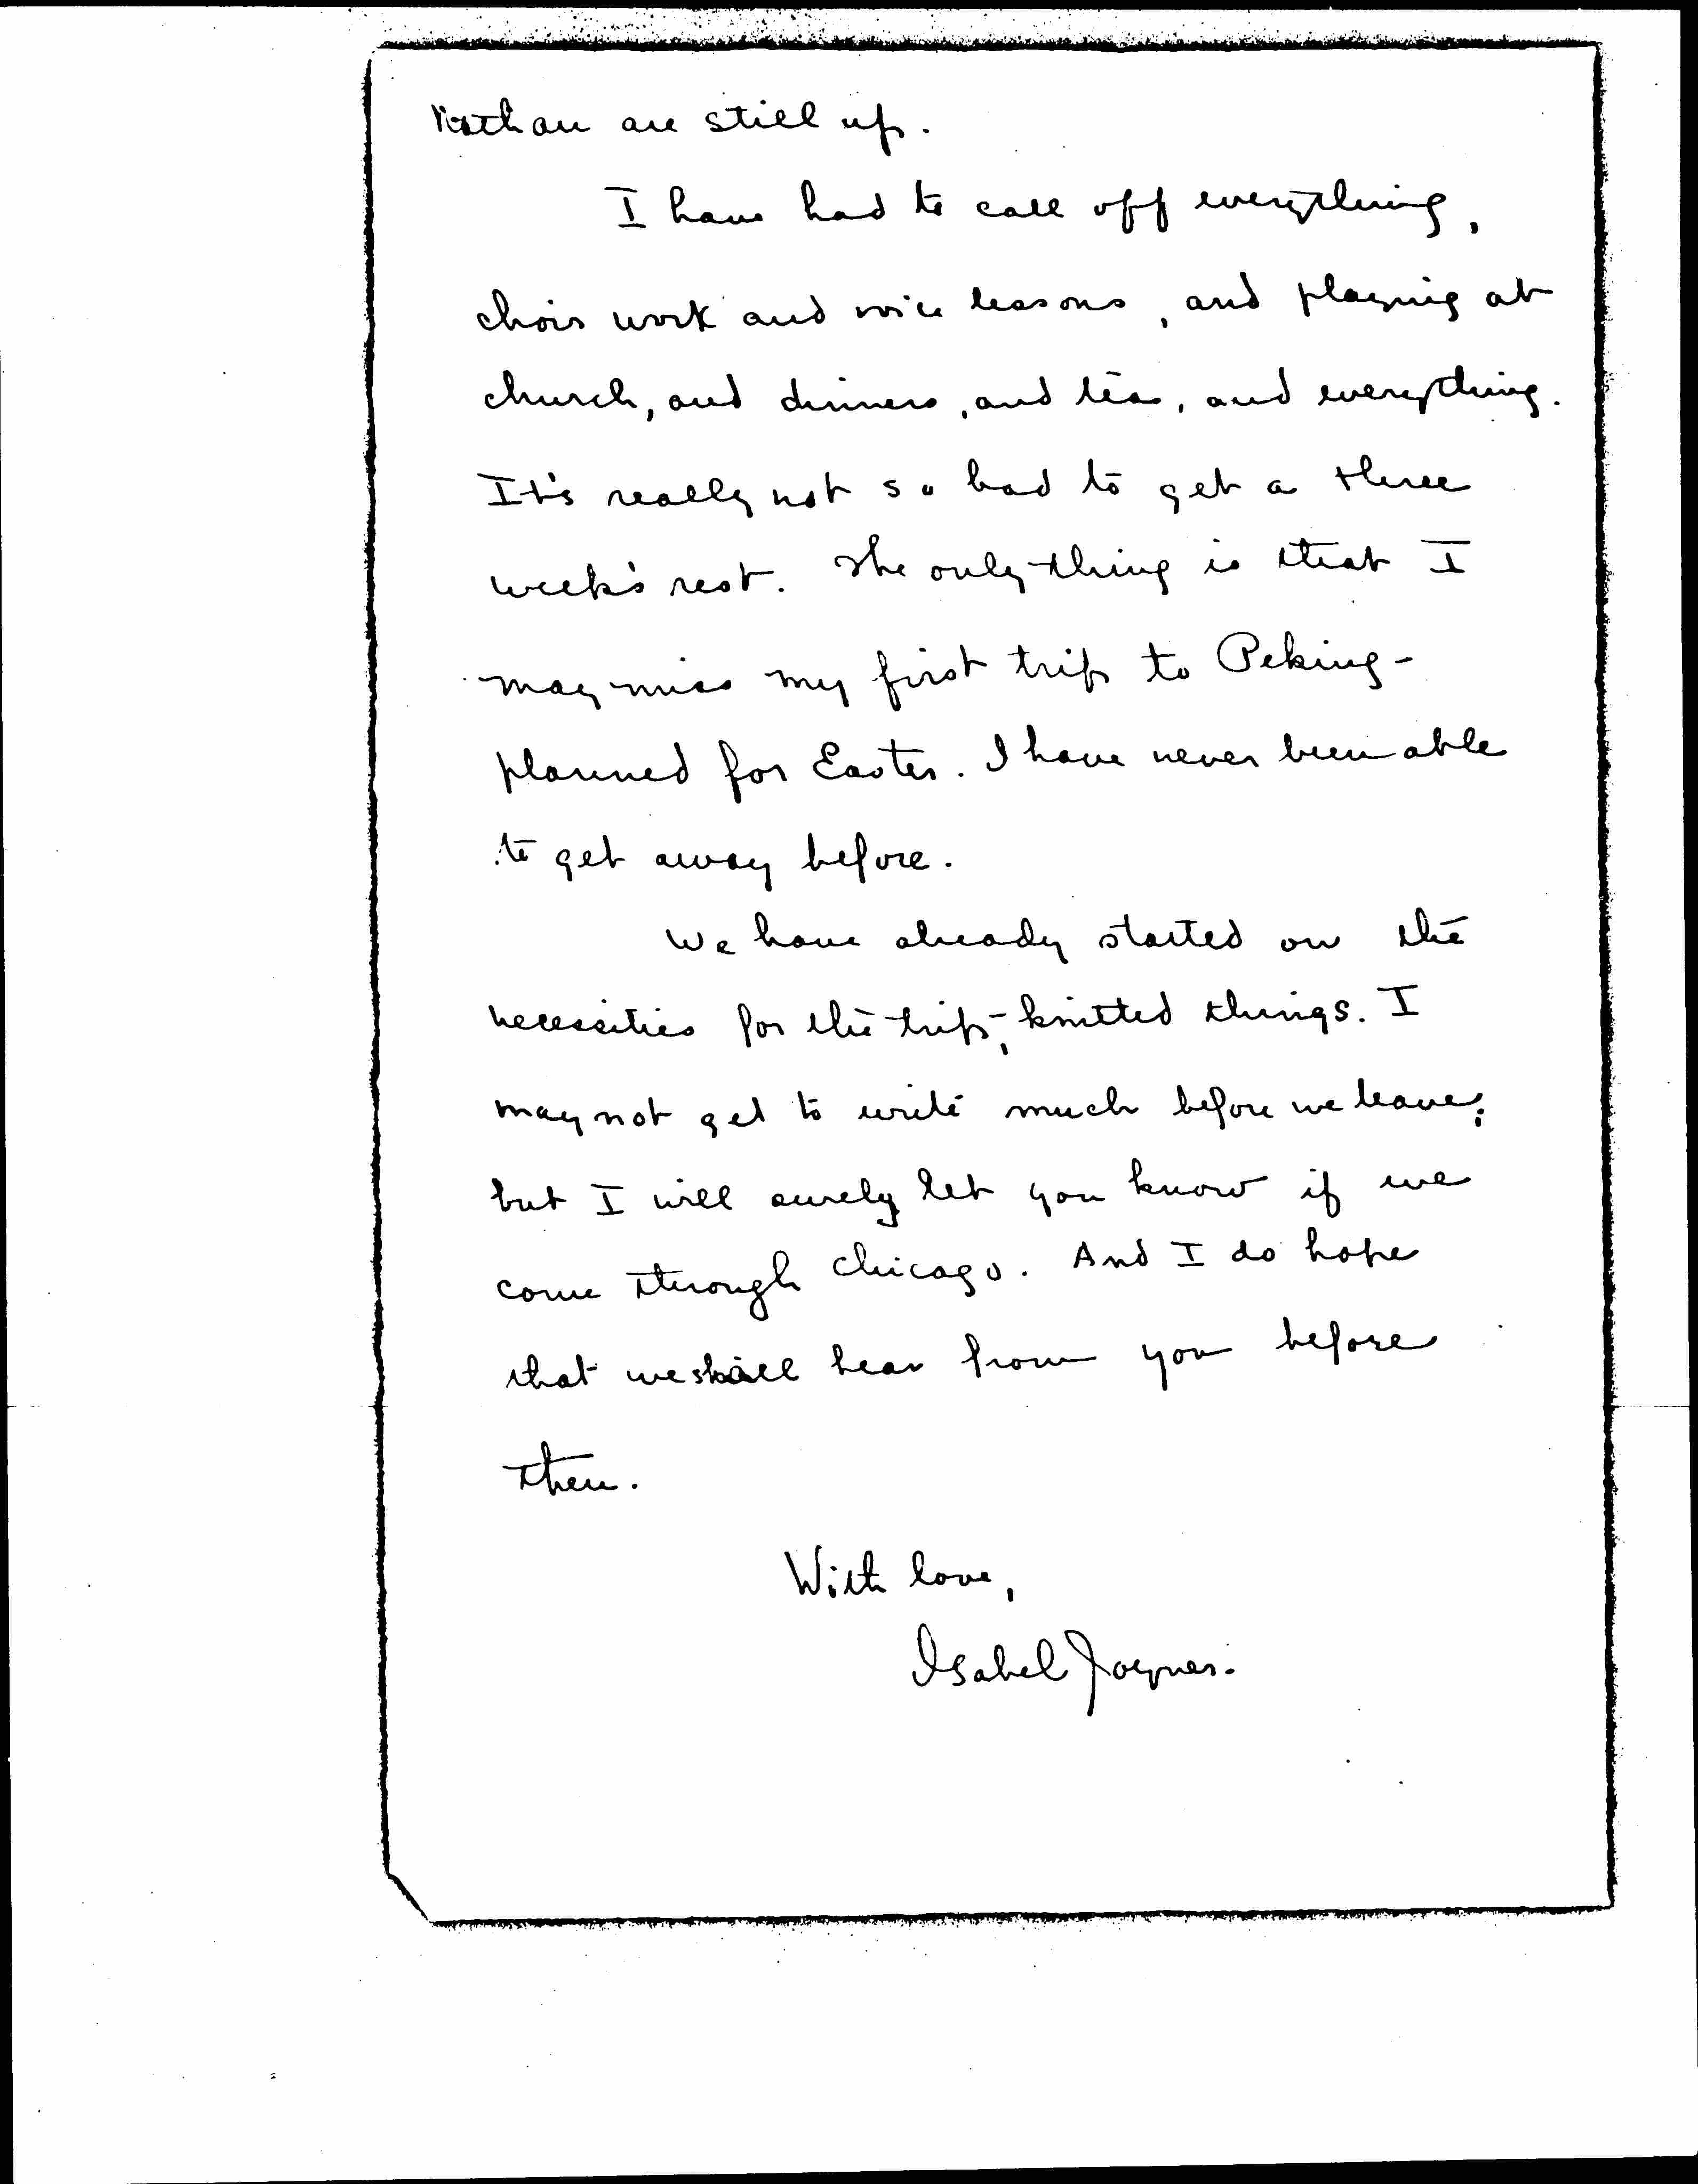 Nathan are still up.
I have had to call off everything,
choir work and voice lessons, and playing at
church, and dinners, and teas, and everything.
It's really not so bad to get a three
week's rest. The only thing is that I
may miss my first trip to Peking-
planned for Easter. I have never been able
to get away before.
We have already started on the
necessities for the trip,- knitted things. I
may not get to write much before we leave;
but I will surely let you know if we
come through Chicago. And I do hope
that we shall hear from you before
then.
With love,
Isabel Joyner.